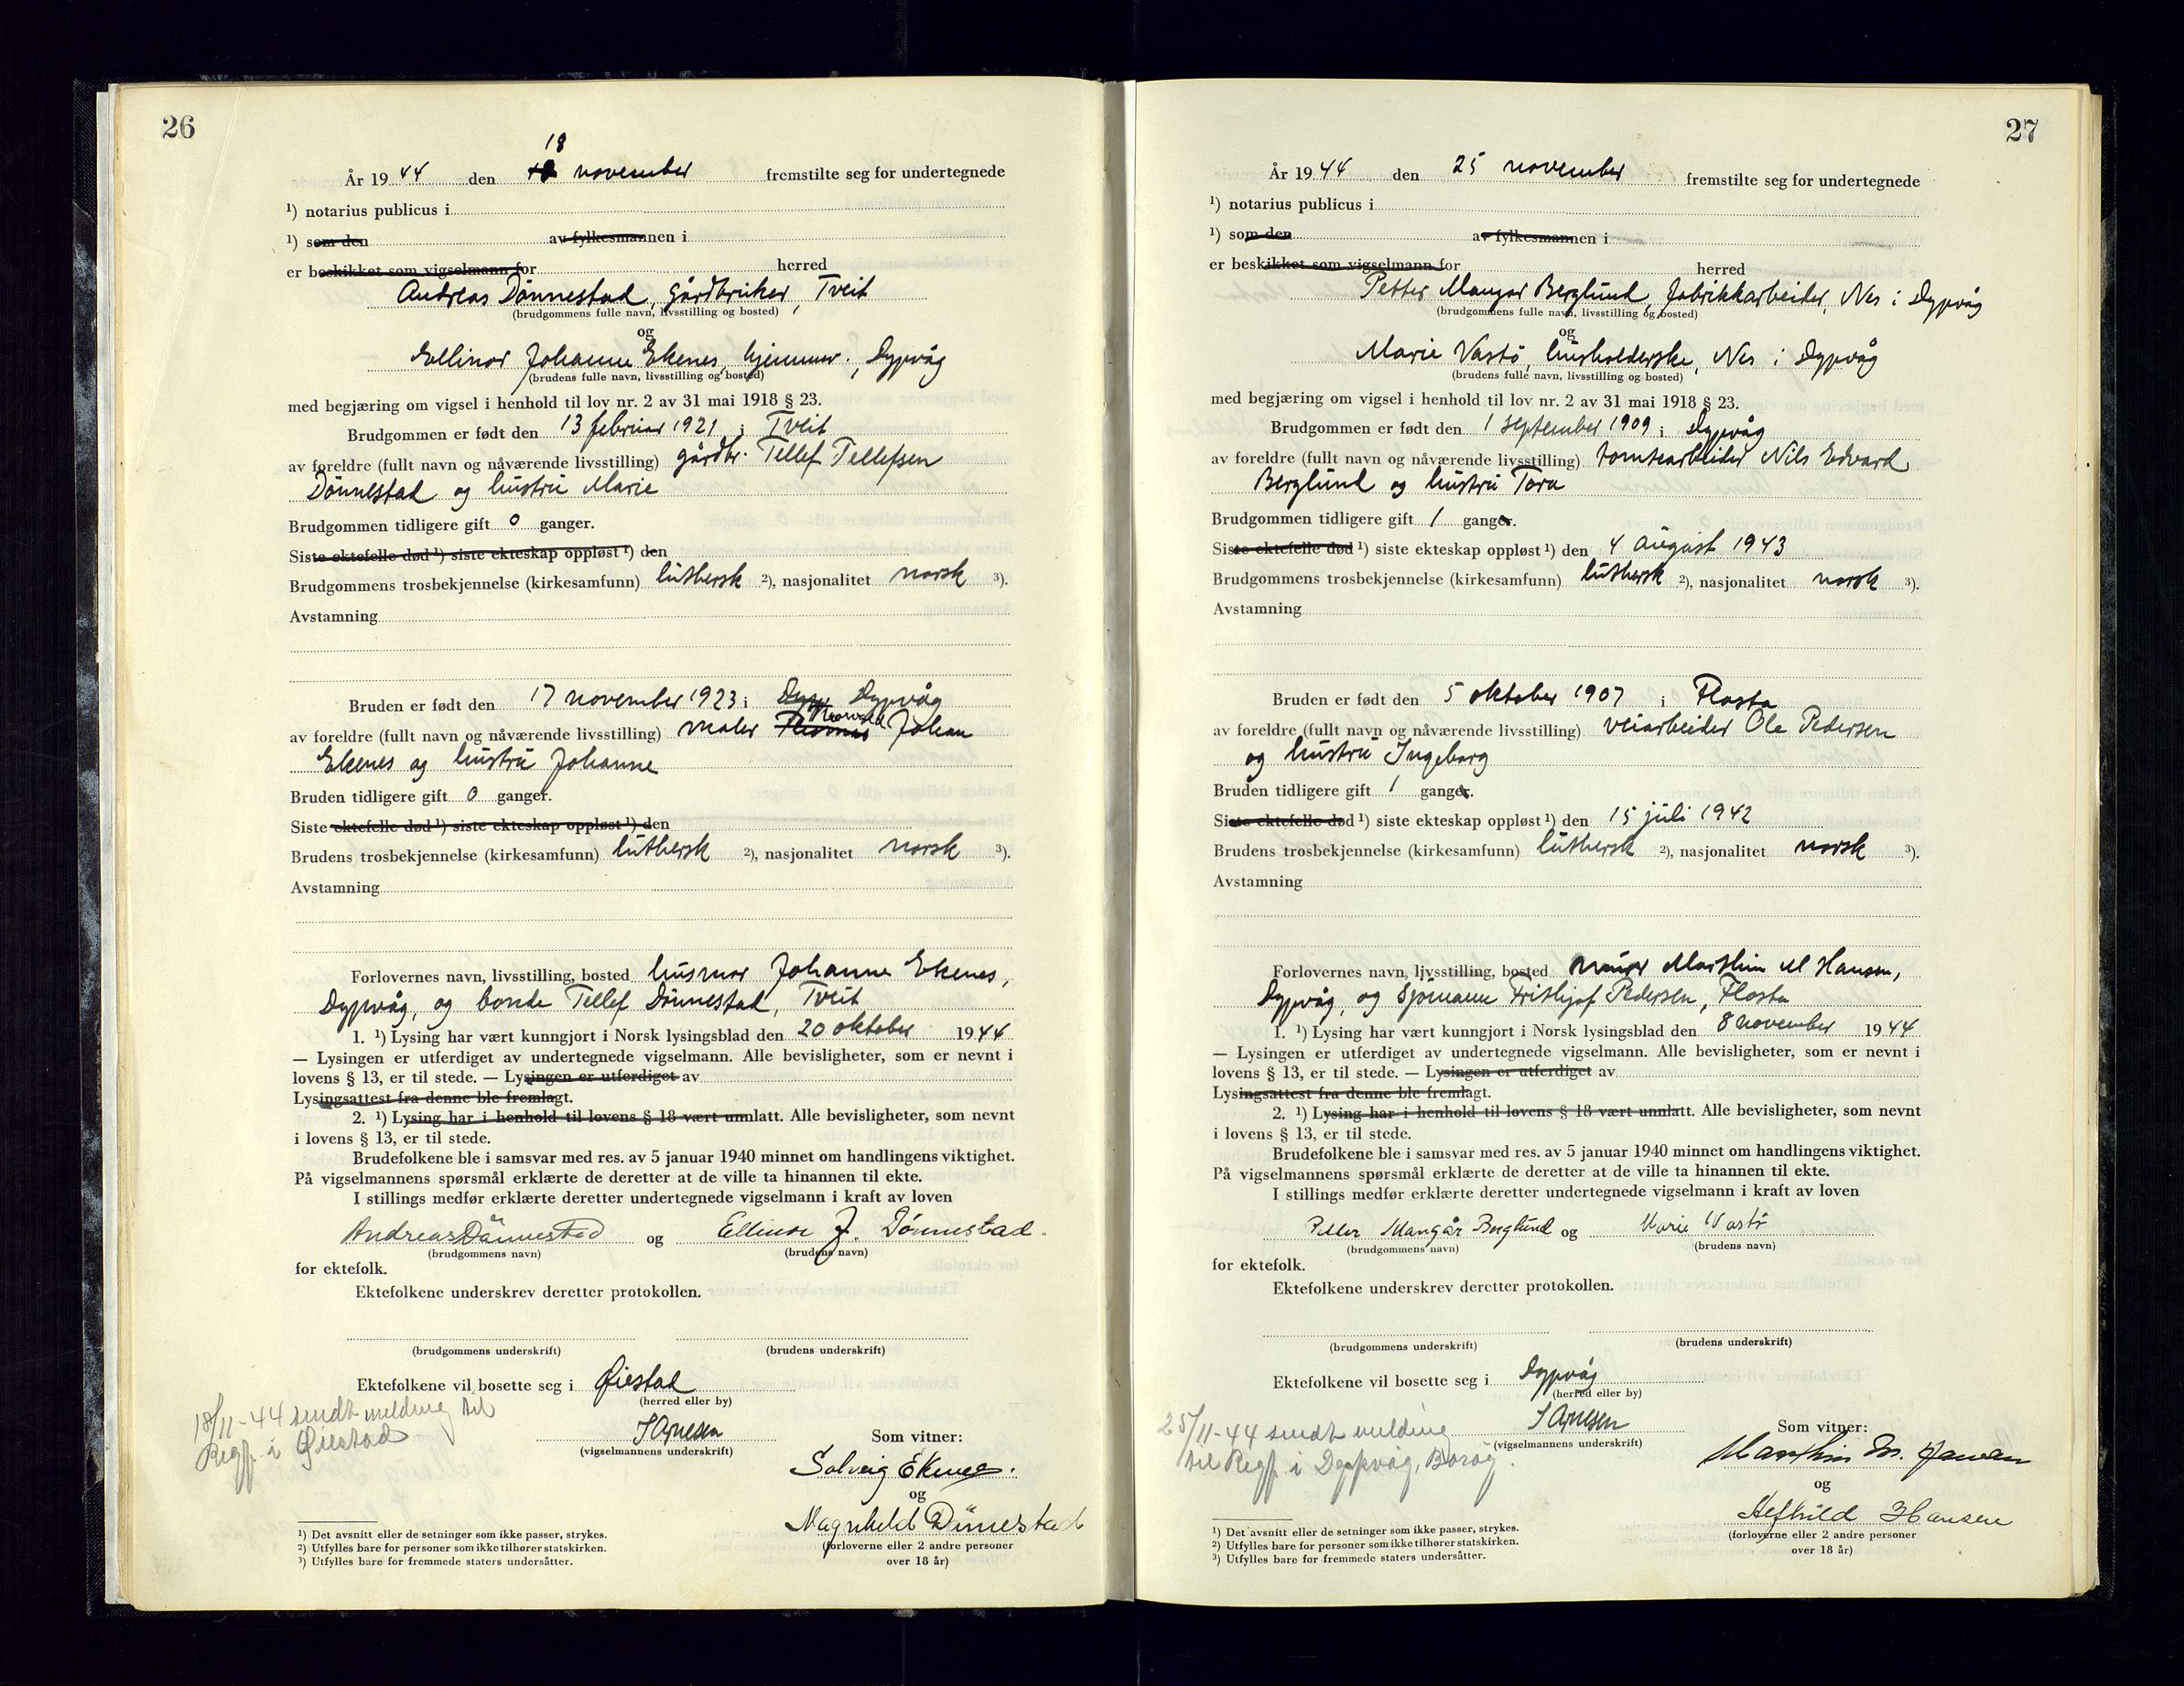 26
18
År 1944 den november fremstilte seg for undertegnede
¹) notarius publicus i
¹) som den av fylkesmannen i
er beskikket som vigselmann for herred
Andreas Dønnestad, gårdbruker, Tveit
(brudgommens fulle navn, livsstilling og bosted)
og
Ellinor Johanne Ekenes, hjemmev., Dypvåg
(brudens fulle navn, livsstilling og bosted)
med begjæring om vigsel i henhold til lov nr. 2 av 31 mai 1918 § 23.
Brudgommen er født den 13 februar 1921 i Tveit
av foreldre (fullt navn og nåværende livsstilling) gårdbr. Tellef Tellefsen
Dønnestad og hustru Marie
Brudgommen tidligere gift 0 ganger.
Siste ektefelle død ¹) siste ekteskap oppløst ¹) den
Brudgommens trosbekjennelse (kirkesamfunn) luthersk ²), nasjonalitet norsk ³).
Avstamning
Bruden er født den 17 november 1923 i Dypv Dypvåg
av foreldre (fullt navn og nåværende livsstilling) maler Thomas Johan
Ekenes og hustru Johanne
Bruden tidligere gift 0 ganger.
Siste ektefelle død ¹) siste ekteskap oppløst ¹) den
Brudens trosbekjennelse (kirkesamfunn) luthersk ²), nasjonalitet norsk ³).
Avstamning
Forlovernes navn, livsstilling, bosted husmor Johanne Ekenes,
Dypvåg, og bonde Tellef Dønnestad, Tveit
1. ¹) Lysing har vært kunngjort i Norsk lysingsblad den 20 oktober 1944
— Lysingen er utferdiget av undertegnede vigselmann. Alle bevisligheter, som er nevnt i
lovens § 13, er til stede. — Lysingen er utferdiget av
Lysingsattest fra denne ble fremlagt.
2. ¹) Lysing har i henhold til lovens § 18 vært unnlatt. Alle bevisligheter, som nevnt
i lovens § 13, er til stede.
Brudefolkene ble i samsvar med res. av 5 januar 1940 minnet om handlingens viktighet.
På vigselmannens spørsmål erklærte de deretter at de ville ta hinannen til ekte.
I stillings medfør erklærte deretter undertegnede vigselmann i kraft av loven
Andreas Dønnestad og Ellinor J. Dønnestad.
(brudgommens navn) (brudens navn)
for ektefolk.
Ektefolkene underskrev deretter protokollen.
(brudgommens underskrift) (brudens underskrift)
Ektefolkene vil bosette seg i Øiestad
(herred eller by)
18/11-44 sendt melding til
Regf. i Øiestad
(vigselmannens underskrift)
Som vitner:
Solveig Ekenes.
og
Magnhild Dönnestad
(forloverne eller 2 andre personer
over 18 år)
¹) Det avsnitt eller de setninger som ikke passer, strykes.
²) Utfylles bare for personer som ikke tilhører statskirken.
³) Utfylles bare for fremmede staters undersåtter.
27
År 1944 den 25 november fremstilte seg for undertegnede
¹) notarius publicus i
¹) som den av fylkesmannen i
er beskikket som vigselmann for herred
Petter Mangor Berglund, fabrikkarbeider, Nes i Dypvåg
(brudgommens fulle navn, livsstilling og bosted)
og
Marie Vastø, husholderske, Nes i Dypvåg
(brudens fulle navn, livsstilling og bosted)
med begjæring om vigsel i henhold til lov nr. 2 av 31 mai 1918 § 23.
Brudgommen er født den 1 september 1909 i Dypvåg
av foreldre (fullt navn og nåværende livsstilling) tomtearbeider Nils Edvard
Berglund og hustru Tora
Brudgommen tidligere gift 1 ganger.
Siste ektefelle død ¹) siste ekteskap oppløst ¹) den 4 august 1943
Brudgommens trosbekjennelse (kirkesamfunn) luthersk ²), nasjonalitet norsk ³).
Avstamning
Bruden er født den 5 oktober 1907 i Flosta
av foreldre (fullt navn og nåværende livsstilling) veiarbeider Ole Pedersen
og hustru Ingeborg
Bruden tidligere gift 1 ganger.
Siste ektefelle død ¹) siste ekteskap oppløst ¹) den 15 juli 1942
Brudens trosbekjennelse (kirkesamfunn) luthersk ²), nasjonalitet norsk ³).
Avstamning
Forlovernes navn, livsstilling, bosted murer Marthin M Hansen,
Dypvåg, og sjømann Frithjof Pedersen, Flosta
1. ¹) Lysing har vært kunngjort i Norsk lysingsblad den 8 november 1944
— Lysingen er utferdiget av undertegnede vigselmann. Alle bevisligheter, som er nevnt i
lovens § 13, er til stede. — Lysingen er utferdiget av
Lysingsattest fra denne ble fremlagt.
2. ¹) Lysing har i henhold til lovens § 18 vært unnlatt. Alle bevisligheter, som nevnt
i lovens § 13, er til stede.
Brudefolkene ble i samsvar med res. av 5 januar 1940 minnet om handlingens viktighet.
På vigselmannens spørsmål erklærte de deretter at de ville ta hinannen til ekte.
I stillings medfør erklærte deretter undertegnede vigselmann i kraft av loven
Petter Mangår Berglund og Marie Vastø
(brudgommens navn) (brudens navn)
for ektefolk.
Ektefolkene underskrev deretter protokollen.
(brudgommens underskrift) (brudens underskrift)
Ektefolkene vil bosette seg i Dypvåg
(herred eller by)
25/11-44 sendt melding
til Regf. i Dypvåg, Borøy.
(vigselmannens underskrift)
Som vitner:
Marthin M. Hansen
og
Alfhild Hansen
(forloverne eller 2 andre personer
over 18 år)
¹) Det avsnitt eller de setninger som ikke passer, strykes.
²) Utfylles bare for personer som ikke tilhører statskirken.
³) Utfylles bare for fremmede staters undersåtter.